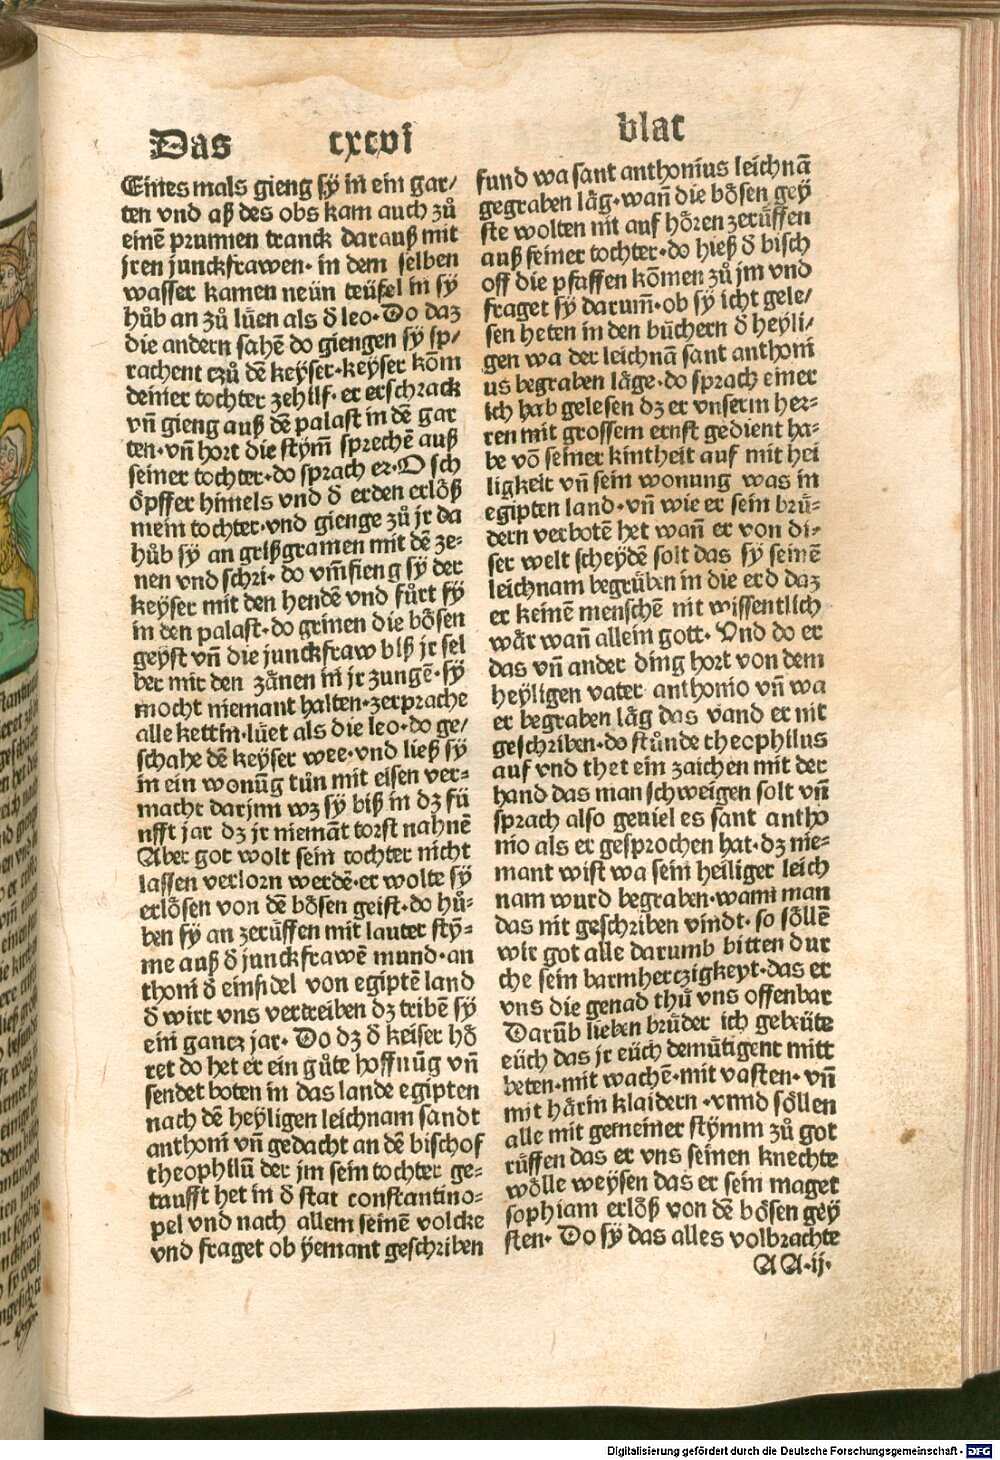 Das cxcvi blat
Eines mals gieng sÿ in ein gar/
ten vnd aß des obs kam auch zů
einē prunnen tranck darauß mit
jren junckfrawen· in dem selben
wasser kamen neün teüfel in sÿ
hůb an zů lüen als d̄ leo· Do daz
die andern sahē do giengen sÿ sp/
rachent czů dē keÿser· keÿser kōm
deiner tochter zehilf· er erschrack
vn̄ gieng auß dē palast in dē gar
ten· vn̄ hort die stÿm̄ sprechē auß
seiner tochter· do sprach er· O sch
öpffer himels vnd d̄ erden erlöß
mein tochter· vnd gienge zů jr da
hůb sÿ an grißgramen mit dē ze-
nen vnd schri· do vm̄fieng sÿ der
keÿser mit den hendē vnd fůrt sÿ
in den palast· do grinen die bösen
geÿst vn̄ die junckfraw biß jr sel
ber mit den zänen in jr zungē· sÿ
mocht niemant halten· zerprache
alle kettin· lüet als die leo· do ge/
schahe dē keÿser wee· vnd ließ sÿ
in ein wonūg tůn mit eisen ver-
macht darjnn wz sÿ biß in dz fü
nfft jar dz jr niemāt torst nahnē
Aber got wolt sein tochter nicht
lassen verlorn werdē· er wolte sÿ
erlösen von dē bösen geist· do hů-
ben sÿ an zerüffen mit lauter stÿ-
me auß d̄ junckfrawē mund· an
thoni d̄ einsidel von egiptē land
d̄ wirt vns vertreiben dz tribē sÿ
ein gancz jar· Do dz d̄ keiser hö
ret do het er ein gůte hoffnūg vn̄
sendet boten in das lande egipten
nach dē heÿligen leichnam sandt
anthoni vn̄ gedacht an dē bischof
theophilū der jm sein tochter ge-
taufft het in d̄ stat constantino-
pel vnd nach allem seinē volcke
vnd fraget ob ÿemant geschriben
fund wa sant anthonius leichnā
gegraben läg· wan̄ die bösen geÿ
ste wolten nit auf hören zerüffen
auß seiner tochter· do hieß d̄ bisch
off die pfaffen kōmen zů jm vnd
fraget sÿ darum̄· ob sÿ icht gele/
sen heten in den büchern d̄ heÿli/
gen wa der leichnā sant anthoni
us begraben läge· do sprach einer
ich hab gelesen dz er vnserm her-
ren mit grossem ernst gedient ha-
be vō seiner kintheit auf mit hei
ligkeit vn̄ sein wonung was in
egipten land· vn̄ wie er sein brü-
dern verbotē het wan̄ er von di-
ser welt scheÿdē solt das sÿ seinē
leichnam begrüben in die erd daz
er keinē menschē nit wissentlich
wär wan̄ allein gott· Vnd do er
das vn̄ ander ding hort von dem
heÿligen vater anthonio vn̄ wa
er begraben läg das vand er nit
geschriben· do stůnde theophilus
auf vnd thet ein zaichen mit der
hand das man schweigen solt vn̄
sprach also geuiel es sant antho
nio als er gesprochen hat· dz nie-
mant wist wa sein heiliger leich
nam wurd begraben· wann man
das nit geschriben vindt· so söllē
wir got alle darumb bitten dur
che sein barmherczigkeyt· das er
vns die genad thů vns offenbar
Darūb lieben brüder ich gebeüte
eüch das jr eüch demütigent mitt
beten· mit wachē· mit vasten· vn̄
mit härin klaidern· vnnd söllen
alle mit gemeiner stÿmm zů got
rüffen das er vns seinen knechte
wölle weÿsen das er sein maget
sophiam erlöß von dē bösen geÿ
sten· Do sÿ das alles volbrachte
A A·ij·
Digitalisierung gefördert durch die Deutsche Forschungsgemeinschaft - DFG